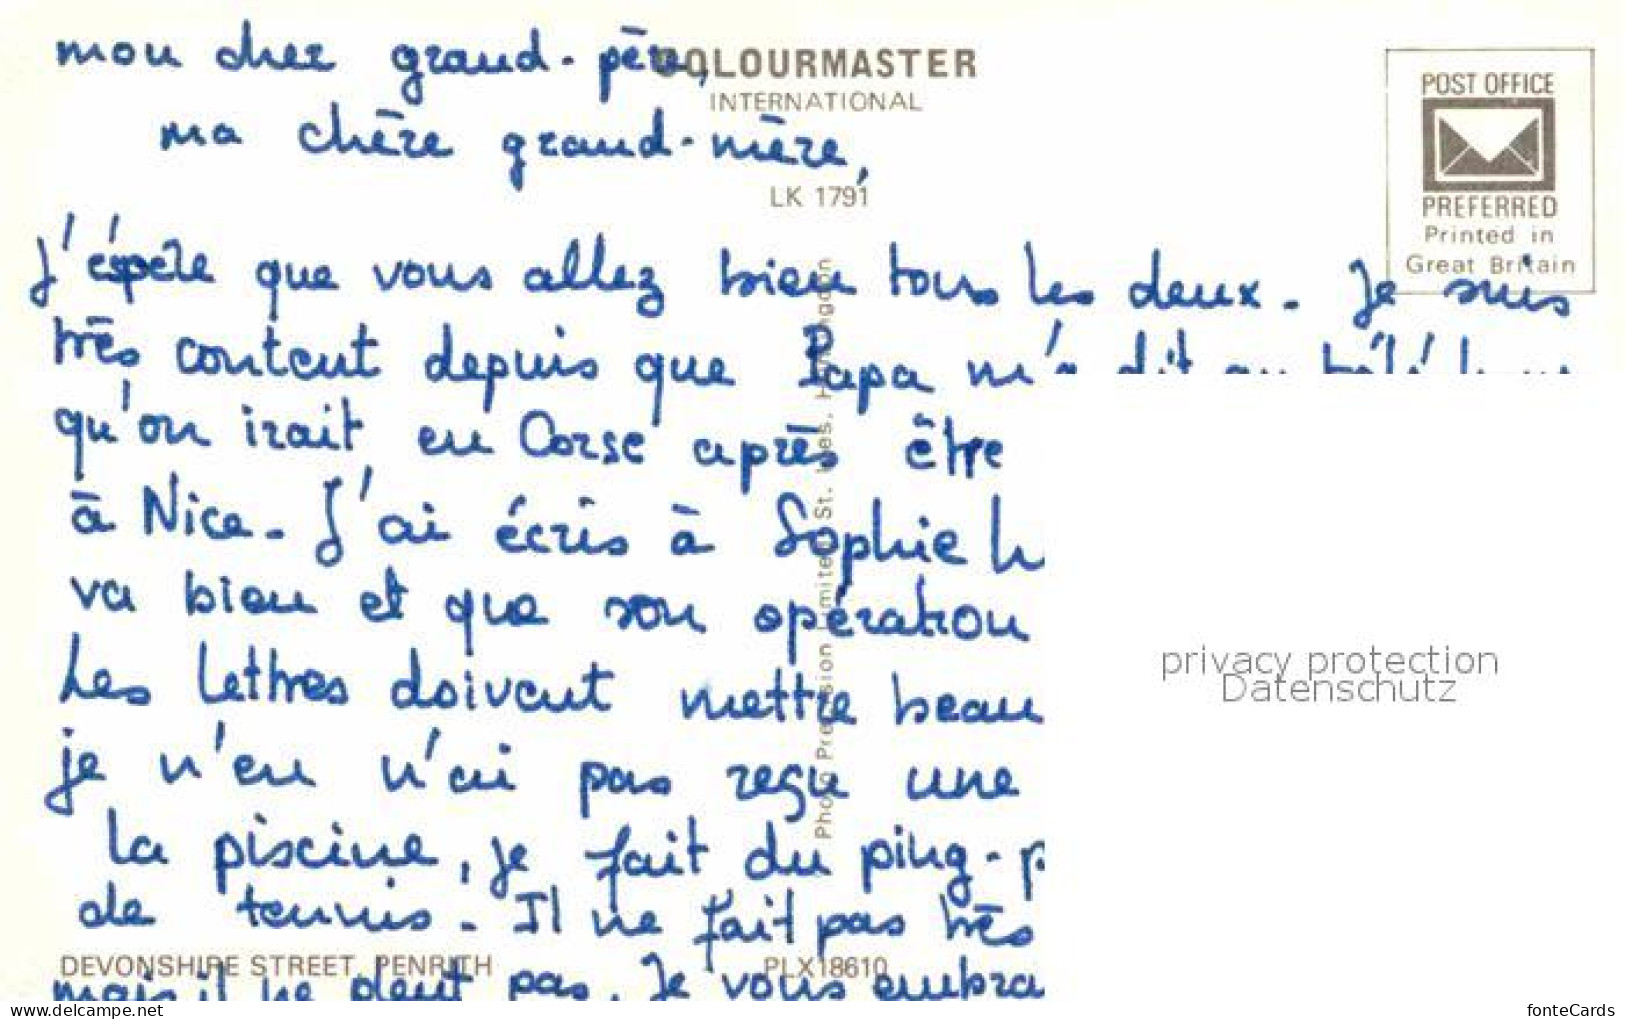 mon cher grand-père,
COLOURMASTER
INTERNATIONAL
ma chère grand-mère,
LK 1791
POST OFFICE
PREFERRED
Printed in
Great Britain
J'éspère que vous allez bien tous les deux. Je suis
très content depuis que Papa m'a dit au
qu'on irait en Corse après être
à Nice. J'ai écris à Sophie
va bien et que son opération
Les lettres doivent mettre beau
je n'en n'ai pas reçu une
la piscine, je fait du ping-p
de tennis. Il ne fait pas très
mais il ne pleut pas. Je vous embra
DEVONSHIRE STREET, PENRITH
PLX18610
Photo Precision Limited, St. Ives, Huntingdon
privacy protection
Datenschutz
www.delcampe.net
fonteCards